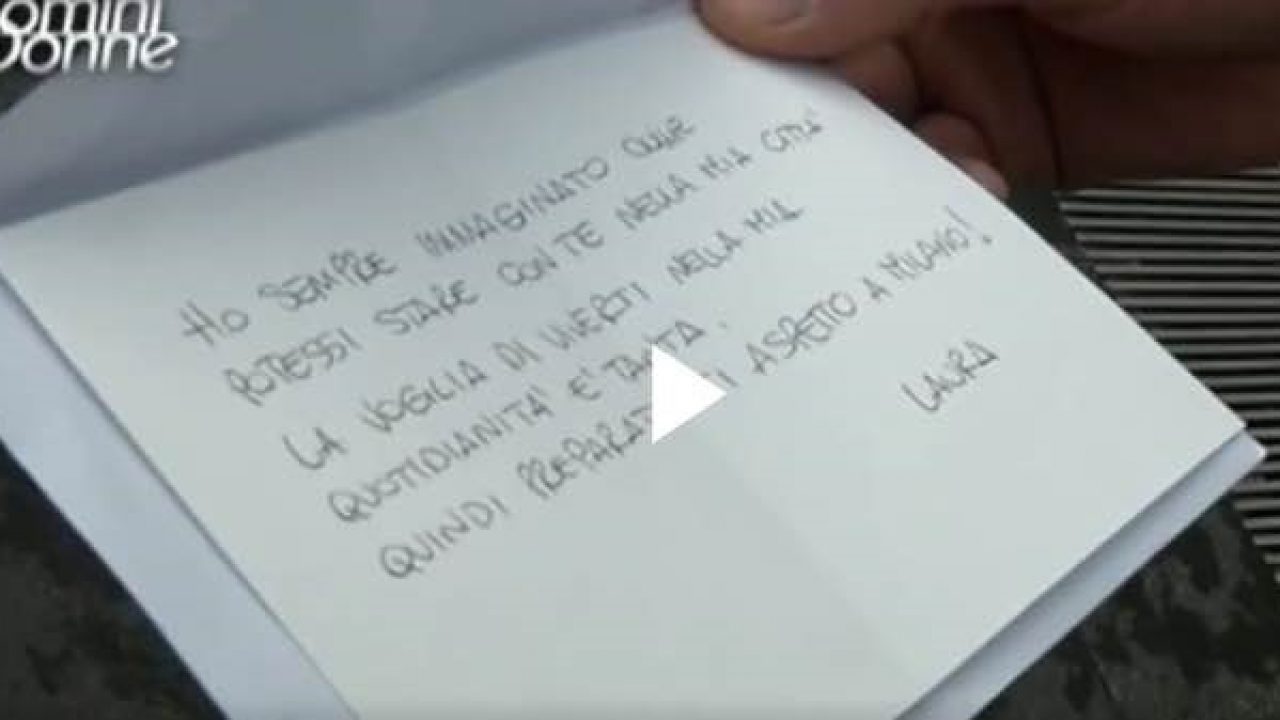 omini
Donne
HO SEMPRE IMMAGINATO
POTESSI STARE CON TE NELLA MIA CITTA'
LA VOGLIA DI VIVERTI NELLA MIA
QUOTIDIANITA' E' TANTA.
QUINDI PREPARATI TI ASPETTO A MILANO!
LAURA